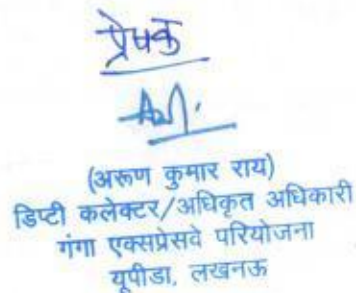 प्रेषक
(अरुण कुमार राय)
डिप्टी कलेक्टर/अधिकृत अधिकारी
गंगा एक्सप्रेसवे परियोजना
यूपीडा, लखनऊ